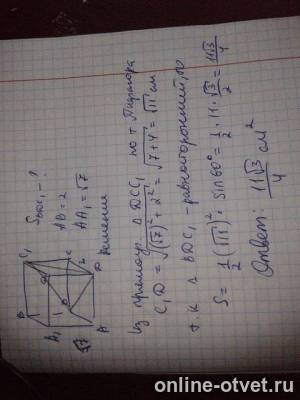 S_BDC₁ - ?
AB = 2
AA₁ = √7
Решение
Из прямоуг. △ DCC₁ по т. Пифагора
C₁D = √((√7)² + 2²) = √(7+4) = √11 см
т.к △ BDC₁ - равносторонний, то
S = 1/2 (√11)² · sin 60° = 1/2 · 11 · √3/2 = 11√3/4
Ответ: 11√3/4 см²
online-otvet.ru